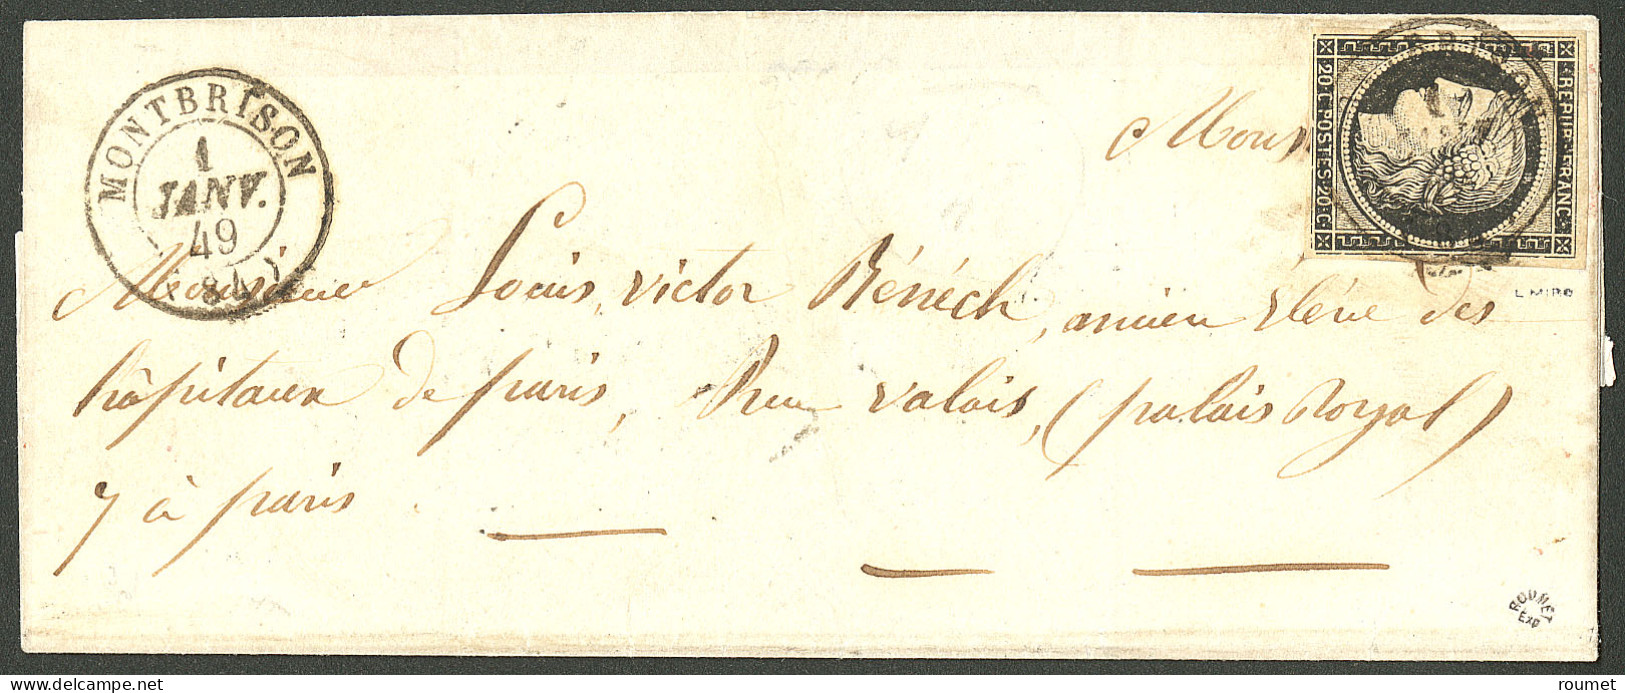 MONTBRISON
1
JANV.
49
(84)
REPUB. FRANC.
20.C.POSTES.20.C
Mons
L MIRO
Monsieur Louis, victor Bénéch, ancien élève des
hôpitaux de paris, Rue valois, (palais Royal)
7 à paris
ROUMET
EXP
delcampe.net
roumet